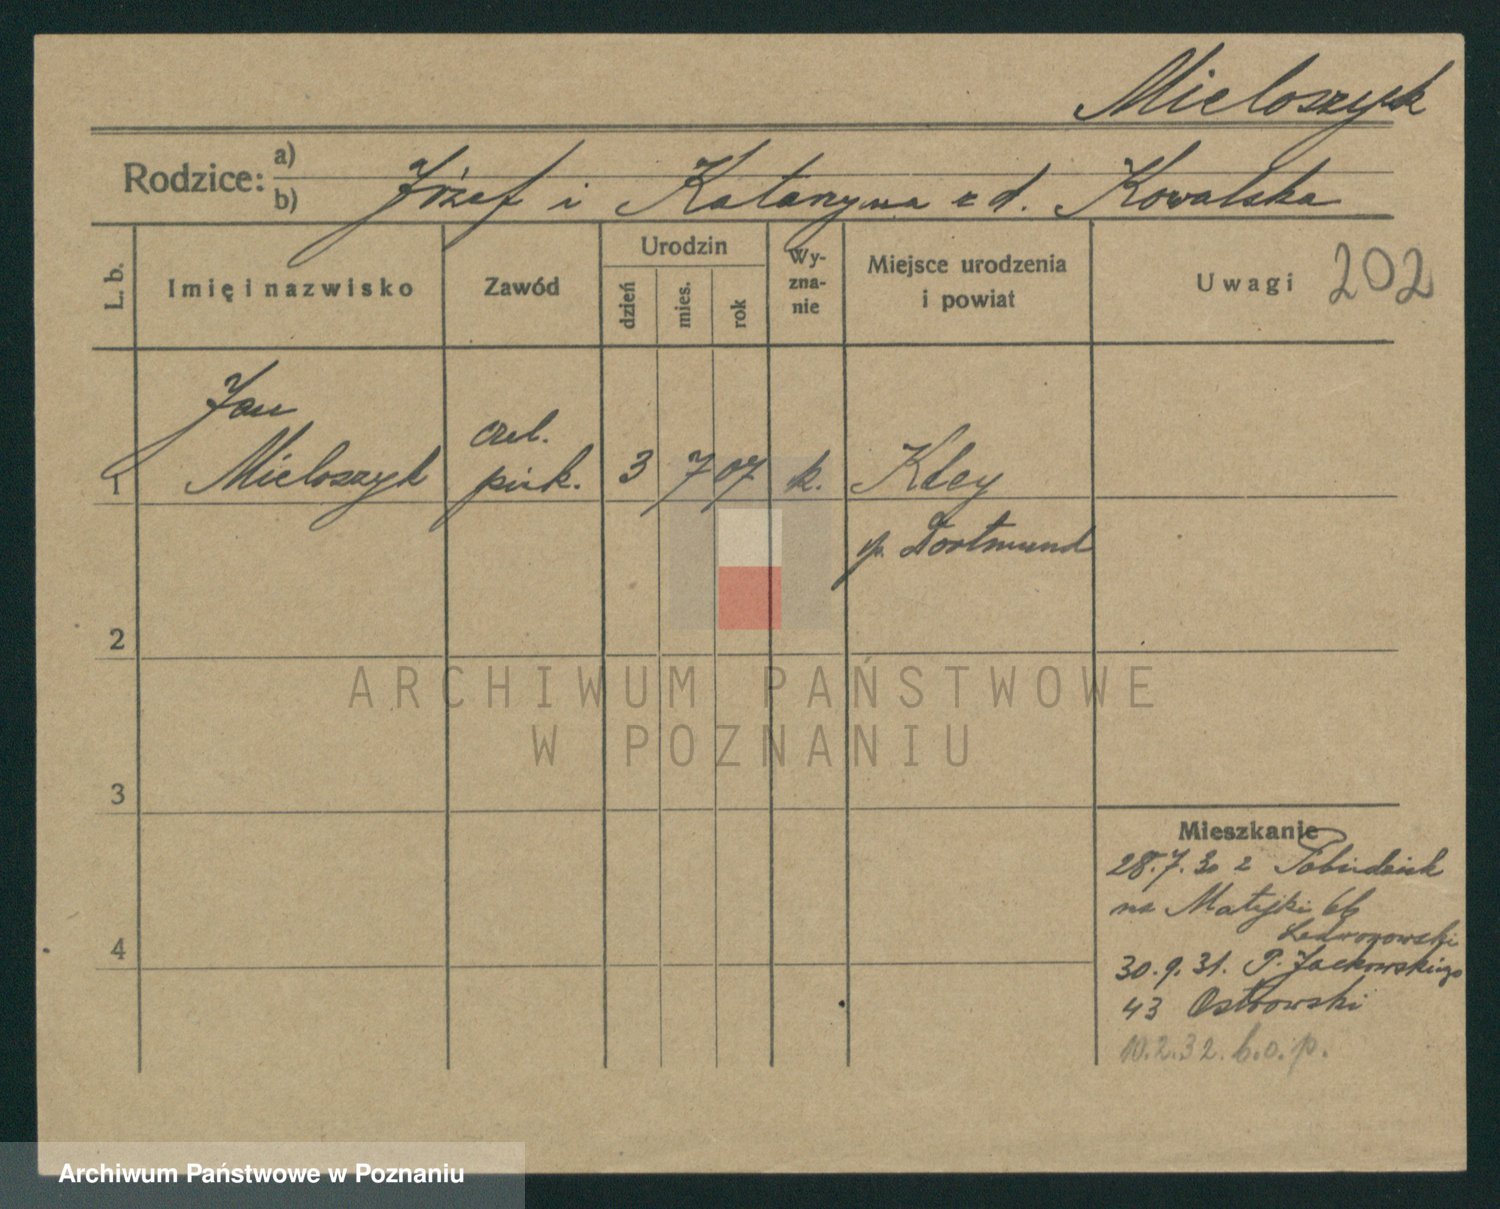 Mieloszyk
Rodzice: a)
b)
Józef i Katarzyna z d. Kowalska
L. b.
Imię i nazwisko
Zawód
Urodzin
dzień
mies.
rok
Wy-
zna-
nie
Miejsce urodzenia
i powiat
Uwagi
202
1
Jan
Mieloszyk
czel.
piek.
3
7
07
k.
Kley
p. Dortmund
2
3
4
Mieszkanie
28.7.30 z
na Matejki 66
30.9.31. P. Jackowskiego
43 Ostrowski
10.2.32. b.o.p.
ARCHIWUM PAŃSTWOWE
W POZNANIU
Archiwum Państwowe w Poznaniu